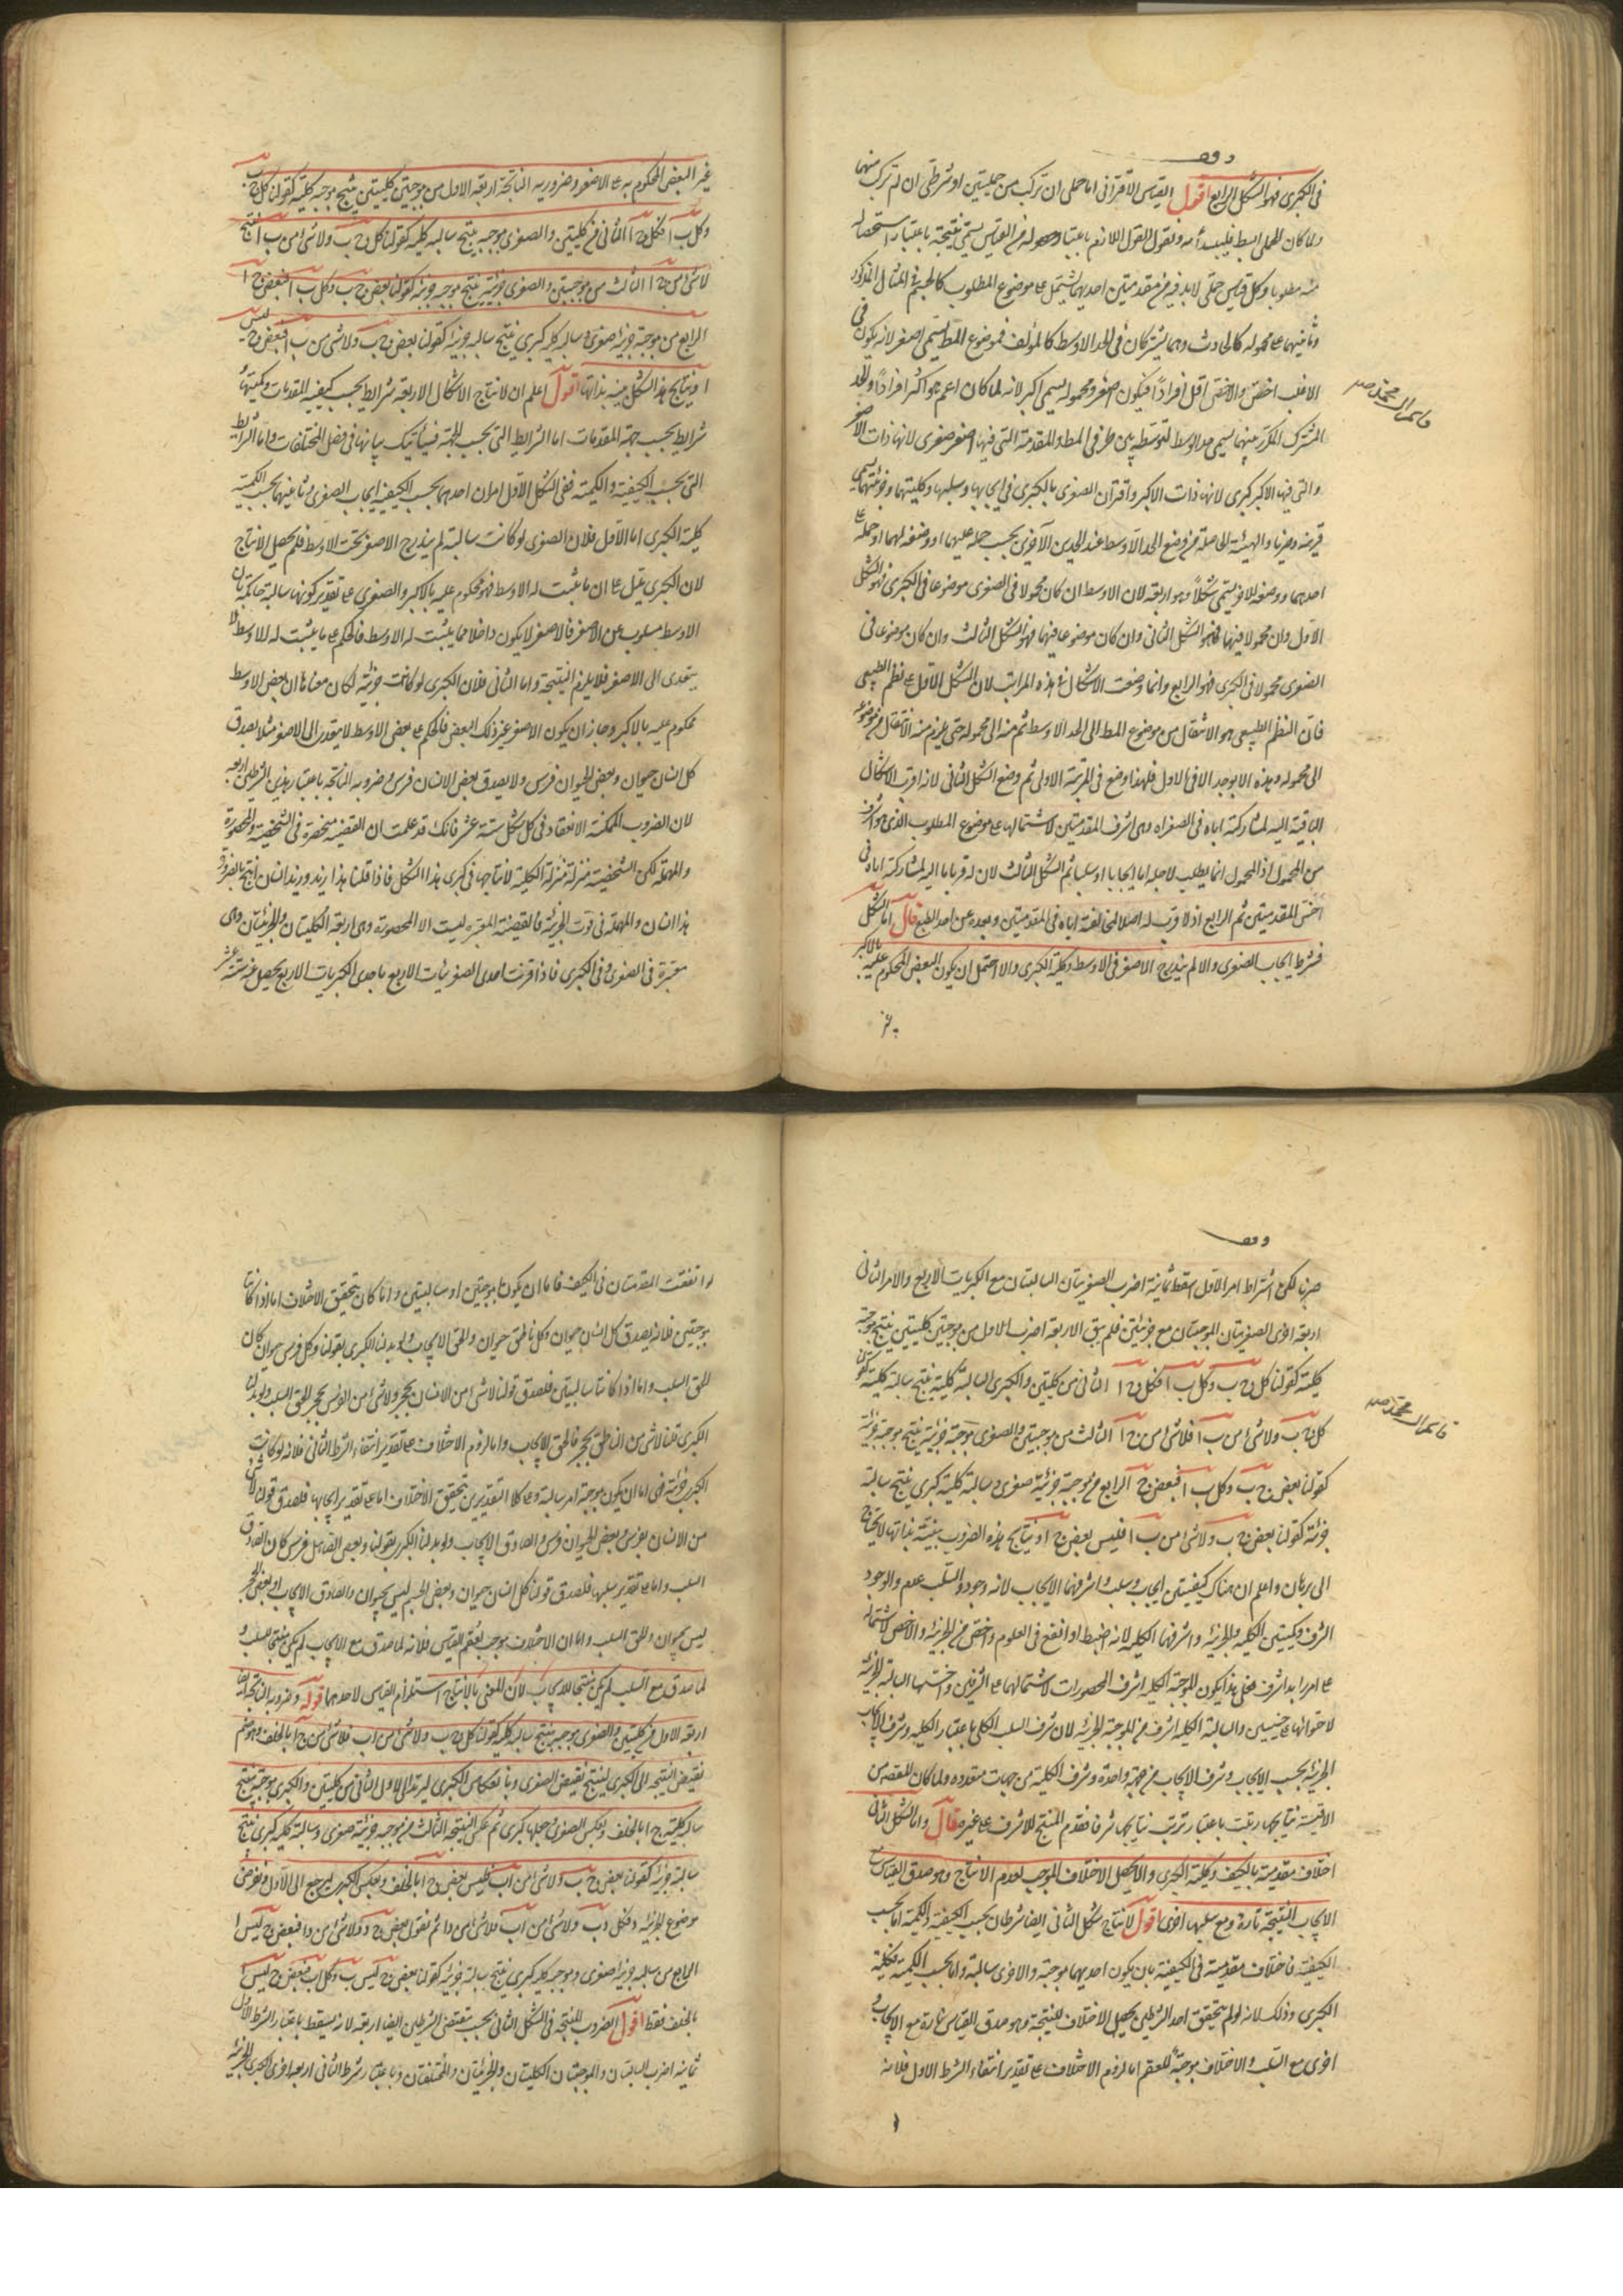 وقف
فى الكبرى فهو الشكل الرابع اقول القياس الاقترانى اما حملى ان تركب من حمليتين او شرطى ان لم تركب منهما
ولما كان الحملى ابسط فليبدأ به ونقول القول اللازم باعتبار حصوله من القياس يسمى نتيجة باعتبار استحصاله
منه مطلوبا وكل قياس حملى لابد فيه من مقدمتين احديهما يشتمل على موضوع المطلوب كالجسم فى المثال المذكور
وثانيتهما على محموله كالحادث وهما يشتركان فى الحد الاوسط كالمؤلف فموضوع المط يسمى اصغر لانه يكون فى
الاغلب اخص والاخص اقل افرادا فيكون اصغر ومحموله يسمى اكبر لانه لما كان اعم فهو اكثر افرادا والحد
المشترك المكرر بينهما يسمى حد اوسط لتوسطه بين طرفى المط والمقدمة التى فيها الاصغر صغرى لانها ذات الاصغر
والتى فيها الاكبر كبرى لانها ذات الاكبر واقتران الصغرى بالكبرى فى ايجابها وسلبها وكليتهما وجزئيتهما يسمى
قرينة وضربا والهيئة الحاصلة من وضع الحد الاوسط عند الحدين الآخرين بحسب حمله عليهما او وضعه لهما او حمله على
احدهما ووضعه للاخر يسمى شكلا وهو اربعة لان الاوسط ان كان محمولا فى الصغرى موضوعا فى الكبرى فهو الشكل
الاول وان محمولا فيهما فهو الشكل الثانى وان كان موضوعا فيهما فهو الشكل الثالث وان كان موضوعا فى
الصغرى محمولا فى الكبرى فهو الرابع وانما وضعت الاشكال فى هذه المراتب لان الشكل الاول على نظم الطبيعى
فان النظم الطبيعى هو الانتقال من موضوع المط الى الحد الاوسط ثم منه الى محموله حتى يلزم منه الانتقال من موضوعه
الى محموله وهذه لا يوجد الا فى الاول فلهذا وضع فى المرتبة الاولى ثم وضع الشكل الثانى لانه اقرب الاشكال
الباقية اليه لمشاركته اياه فى الصغراه وهى اشرف المقدمتين لاشتمالها على موضوع المطلوب الذى هو اشرف
من المحمول اذ المحمول انما يطلب لاجله اما ايجابا او سلبا ثم الشكل الثالث لان له قربا ما اليه لمشاركته اياه فى
اخس المقدمتين ثم الرابع اذ لا قرب له اصلا لمخالفته اياه فى المقدمتين وبعده عن احد الطبع قال اما الشكل
فشرط ايجاب الصغرى والا لم يندرج الاصغر فى الاوسط وكلية الكبرى والا احتمل ان يكون البعض المحكوم عليه بالاكبر
غير
غير البعض المحكوم به على الاصغر وضروبه الناتجة اربعة الاول من موجبتين كليتين ينتج موجبة كلية كقولنا كل ج ب
وكل ب ا فكل ج ا الثانى من كليتين والصغرى موجبة ينتج سالبة كلية كقولنا كل ج ب ولا شئ من ب ا ينتج
لا شئ من ج ا الثالث من موجبتين والصغرى جزئية ينتج موجبة جزئية كقولنا بعض ج ب وكل ب ا فبعض ج ا
الرابع من موجبة جزئية صغرى وسالبة كلية كبرى ينتج سالبة جزئية كقولنا بعض ج ب ولا شئ من ب ا فبعض ج ليس
ا ونتايج هذا الشكل بينة بذاتها اقول اعلم ان لانتاج الاشكال الاربعة شرايط بحسب كيفية المقدمات وكميتها
شرايط بحسب جهة المقدمات اما الشرايط التى بحسب الجهة فسيأتيك بيانها فى فصل المختلطات واما الشرايط
التى بحسب الكيفية والكمية ففى الشكل الاول امران احدهما بحسب الكيفية ايجاب الصغرى وثانيهما بحسب الكمية
كلية الكبرى اما الاول فلان الصغرى لو كانت سالبة لم يندرج الاصغر تحت الاوسط فلم يحصل الانتاج
لان الكبرى تدل على ان ما ثبت له الاوسط فهو محكوم عليه بالاكبر والصغرى على تقدير كونها سالبة حاكمة بان
الاوسط مسلوب عن الاصغر فالاصغر لا يكون داخلا فيما يثبت له الاوسط فالحكم على ما يثبت له الاوسط لا
يتعدى الى الاصغر فلا يلزم النتيجة واما الثانى فلان الكبرى لو كانت جزئية لكان معناها ان بعض الاوسط
محكوم عليه بالاكبر وجاز ان يكون الاصغر غير ذلك البعض فالحكم على بعض الاوسط لا يتعدى الى الاصغر مثلا يصدق
كل انسان حيوان وبعض الحيوان فرس ولا يصدق بعض الانسان فرس وضروبه الناتجة باعتبار هذين الشرطين اربعة
لان الضروب الممكنة الانعقاد فى كل شكل ستة عشر فانك قد علمت ان القضية منحصرة فى الشخصية والمحصورة
والمهملة لكن الشخصية منزلة منزلة الكلية لانتاجها فى كبرى هذا الشكل فاذا قلنا هذا زيد وزيد انسان انتج بالضرورة
هذا انسان والمهملة فى قوت الجزئية فالقضية المعتبرة ليست الا المحصورة وهى اربعة الكليتان والجزئيتان وهى
معتبرة فى الصغرى وفى الكبرى فاذا اقرنت احدى الصغريات الاربع باحدى الكبريات الاربع يحصل منه ستة عشر
وقف
ضربا لكن اشتراط امر الاول اسقط ثمانية اضرب الصغريتان السالبتان مع الكبريات الاربع والامر الثانى
اربعة اخرى الصغريتان الموجبتان مع جزئيتين فلم يبق الا اربعة اضرب الاول من موجبتين كليتين ينتج موجبة
كلية كقولنا كل ج ب وكل ب ا فكل ج ا الثانى من كليتين والكبرى السالبة كلية ينتج سالبة كلية كقولنا
كل ج ب ولا شئ من ب ا فلا شئ من ج ا الثالث من موجبتين والصغرى موجبة جزئية ينتج موجبة جزئية
كقولنا بعض ج ب وكل ب ا فبعض ج ا الرابع من موجبة جزئية صغرى وسالبة كلية كبرى ينتج سالبة
جزئية كقولنا بعض ج ب ولا شئ من ب ا فليس بعض ج ا ونتايج هذه الضروب بينة بذاتها لا يحتاج
الى برهان واعلم ان هناك كيفيتين ايجاب وسلب واشرفهما الايجاب لانه وجود والسلب عدم والوجود
اشرف وكميتين الكلية والجزئية واشرفهما الكلية لانه اضبط او انفع فى العلوم واخص من الجزئية والاخص لاشتماله
على امر زايد اشرف فعلى هذا يكون الموجبة الكلية اشرف المحصورات لاشتمالها على الشرفين واخسها السالبة الجزئية
لاحتوائها على خسيسين والسالبة الكلية اشرف من الموجبة الجزئية لان شرف السلب الكلى باعتبار الكلية وشرف الايجاب
الجزئية بحسب الايجاب وشرف الايجاب من جهة واحدة وشرف الكلية من جهات متعدده ولما كان المقصود من
الاقيسة نتايجها رتبت باعتبار ترتب نتايجها شرفا فقدم المنتج للاشرف على غيره قال واما الشكل الثانى
اختلاف مقدمتيه بالكيف وكلية الكبرى والا يحصل الاختلاف الموجب لعدم الانتاج وهو صدق القياس مع
الايجاب النتيجة تارة ومع سلبها اخرى اقول لانتاج شكل الثانى ايضا شرطان بحسب الكيفية والكمية اما بحسب
الكيفية فاختلاف مقدمتيه فى الكيفية بان يكون احديهما موجبة والاخرى سالبة واما بحسب الكمية فكلية
الكبرى وذلك لانه لو لم يتحقق احد الشرطين يحصل الاختلاف للنتيجة وهو صدق القياس تارة مع الايجاب و
اخرى مع السلب والاختلاف موجبة للعقم اما لزوم الاختلاف على تقدير انتفاء الشرط الاول فلانه
لو اتفقت المقدمتان فى الكيف فاما ان يكون موجبتين او سالبتين واما كان يتحقق الاختلاف اما اذا كانتا
موجبتين فلانه يصدق كل انسان حيوان وكل ناطق حيوان والحق الايجاب ولو بدلنا الكبرى بقولنا وكل فرس حيوان كان
الحق السلب واما اذا كانتا سالبتين فلصدق قولنا لا شئ من الانسان بحجر ولا شئ من الفرس بحجر الحق السلب ولو بدلنا
الكبرى قلنا لا شئ من الناطق بحجر فالحق الايجاب واما لزوم الاختلاف على تقدير انتفاء الشرط الثانى فلانه لو كانت
الكبرى جزئية فهى اما ان يكون موجبة او سالبة وعلى كلا التقديرين يتحقق الاختلاف اما على تقدير ايجابها فلصدق قولنا لا شئ
من الانسان بفرس وبعض الحيوان فرس والصادق الايجاب ولو بدلنا الكبرى بقولنا وبعض الصاهل فرس كان الصادق
السلب واما على تقدير سلبها فلصدق قولنا كل انسان حيوان وبعض الجسم ليس بحيوان والصادق الايجاب او بعض الحجر
ليس بحيوان والحق السلب واما ان الاختلاف موجب لعقم القياس فلانه لما صدق مع الايجاب لم يكن منتجا للسلب و
لما صدق مع السلب لم يكن منتجا للايجاب لان المعنى بالانتاج استلزام القياس لاحدهما قوله وضروبه الناتجة ايضا
اربعة الاول من كليتين والصغرى موجبة ينتج سالبة كلية كقولنا كل ج ب ولا شئ من ا ب فلا شئ من ج ا بالخلف وهو ضم
نقيض النتيجة الى الكبرى لينتج نقيض الصغرى وبانعكاس الكبرى ليرتد الى الاول الثانى من كليتين والكبرى موجبة ينتج
سالبة كلية ج ا بالخلف وبعكس الصغرى وجعلها كبرى ثم عكس النتيجة الثالث من موجبة جزئية صغرى وسالبة كلية كبرى ينتج
سالبة جزئية كقولنا بعض ج ب ولا شئ من ا ب فليس بعض ج ا بالخلف وبعكس الكبرى ليرجع الى الاول ونفرض
موضوع الجزئية د فكل د ب ولا شئ من ا ب فلا شئ من د ا ثم نقول بعض ج د ولا شئ من د ا فبعض ج ليس ا
الرابع من سالبة جزئية صغرى وموجبة كلية كبرى ينتج سالبة جزئية كقولنا بعض ج ليس ب وكل ا ب فبعض ج ليس ا
بالخلف فقط اقول الضروب المنتجة فى الشكل الثانى بحسب مقتضى الشرطين ايضا اربعة لانه يسقط باعتبار الشرط الاول
ثمانية اضرب السالبتان والموجبتان الكليتان والجزئيتان والمختلفتان وباعتبار شرط الثانى اربعة اخرى الكبرى الجزئية